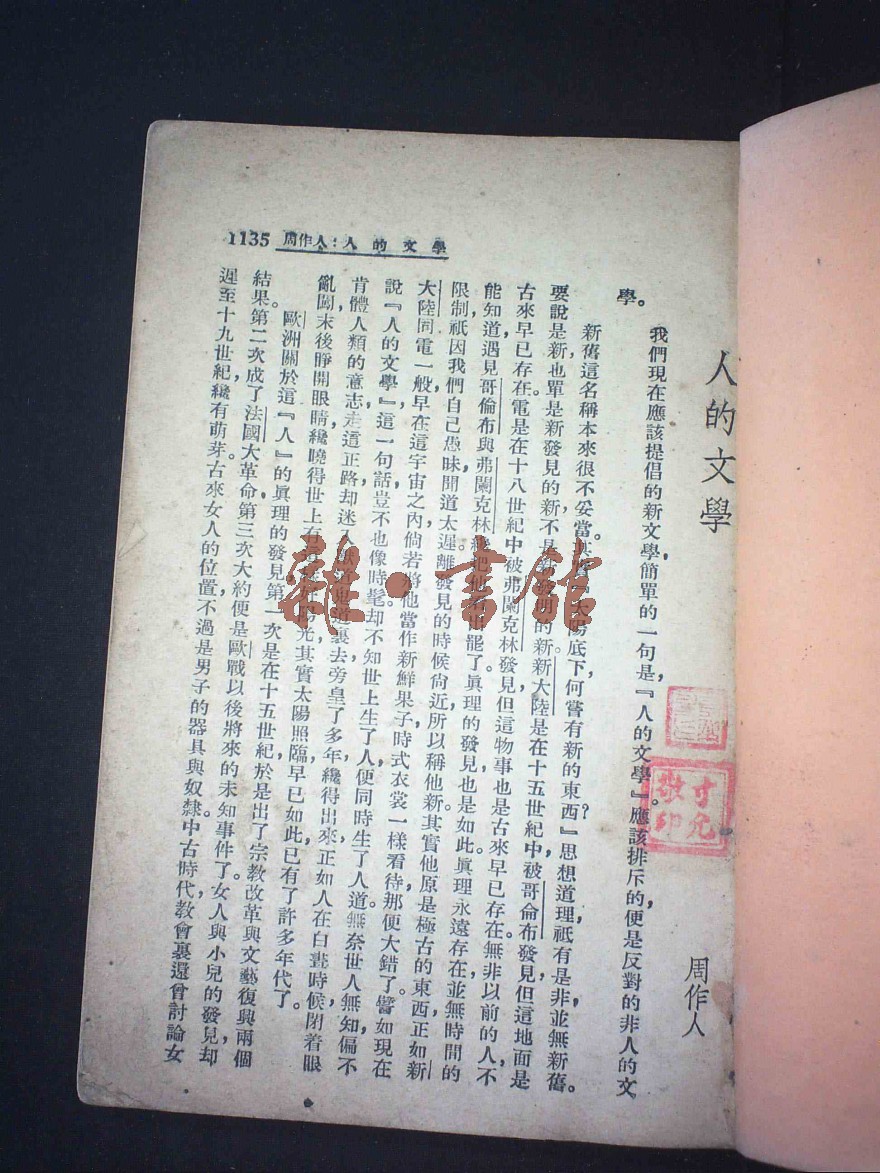 1135 周作人:人的文學
人的文學
周作人
我們現在應該提倡的新文學,簡單的一句是,『人的文學。』應該排斥的便是反對的非人的文
學。
新舊這名稱,本來很不妥當。其實『太陽底下,何嘗有新的東西?』思想道理,祇有是非,並無新舊。
要說是新,也單是新發見的新,不是新發明的新。新大陸是在十五世紀中,被哥侖布發見,但這地面是
古來早已存在。電是在十八世紀中,被弗闌克林發見,但這物事也是古來早已存在。無非以前的人,不
能知道,遇見哥侖布與弗闌克林纔把他看出罷了。眞理的發見,也是如此。眞理永遠存在,並無時間的
限制,祇因我們自己愚昧,聞道太遲,離發見的時候尙近,所以稱他新。其實他原是極古的東西,正如新
大陸同電一般,早在這宇宙之內,倘若將他當作新鮮果子,時式衣裳一樣看待,那便大錯了。譬如現在
說『人的文學,』這一句話,豈不也像時髦。却不知世上生了人,便同時生了人道。無奈世人無知,偏不
肯體人類的意志,走這正路,却迷入獸道鬼道裏去,旁皇了多年,纔得出來。正如人在白晝時候,閉着眼
亂闖,末後睜開眼睛,纔曉得世上有這樣好陽光,其實太陽照臨,早已如此,已有了許多年代了。
歐洲關於這『人』的眞理的發見,第一次是在十五世紀,於是出了宗教改革與文藝復興兩個
結果。第二次成了法國大革命,第三次大約便是歐戰以後將來的未知事件了。女人與小兒的發見,却
遲至十九世紀,纔有萌芽。古來女人的位置,不過是男子的器具與奴隸。中古時代,教會裏還曾討論女
雜·書館
寸允
敬印